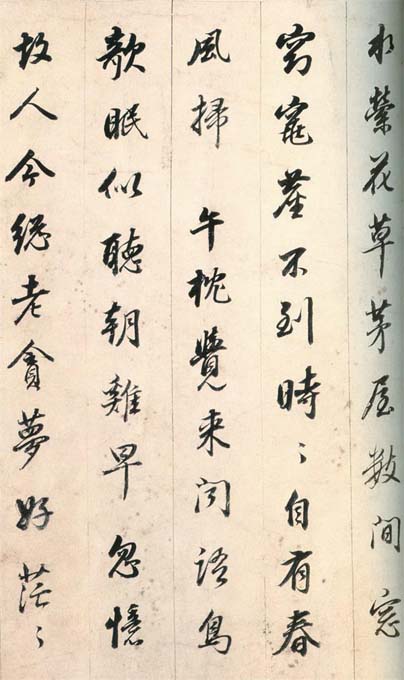 水縈花草茅屋數間窓
窈窕塵不到時〻自有春
風掃 午枕覺来聞語鳥
欹眠似聽朝雞早忽憶
故人今總老貪夢好茫〻